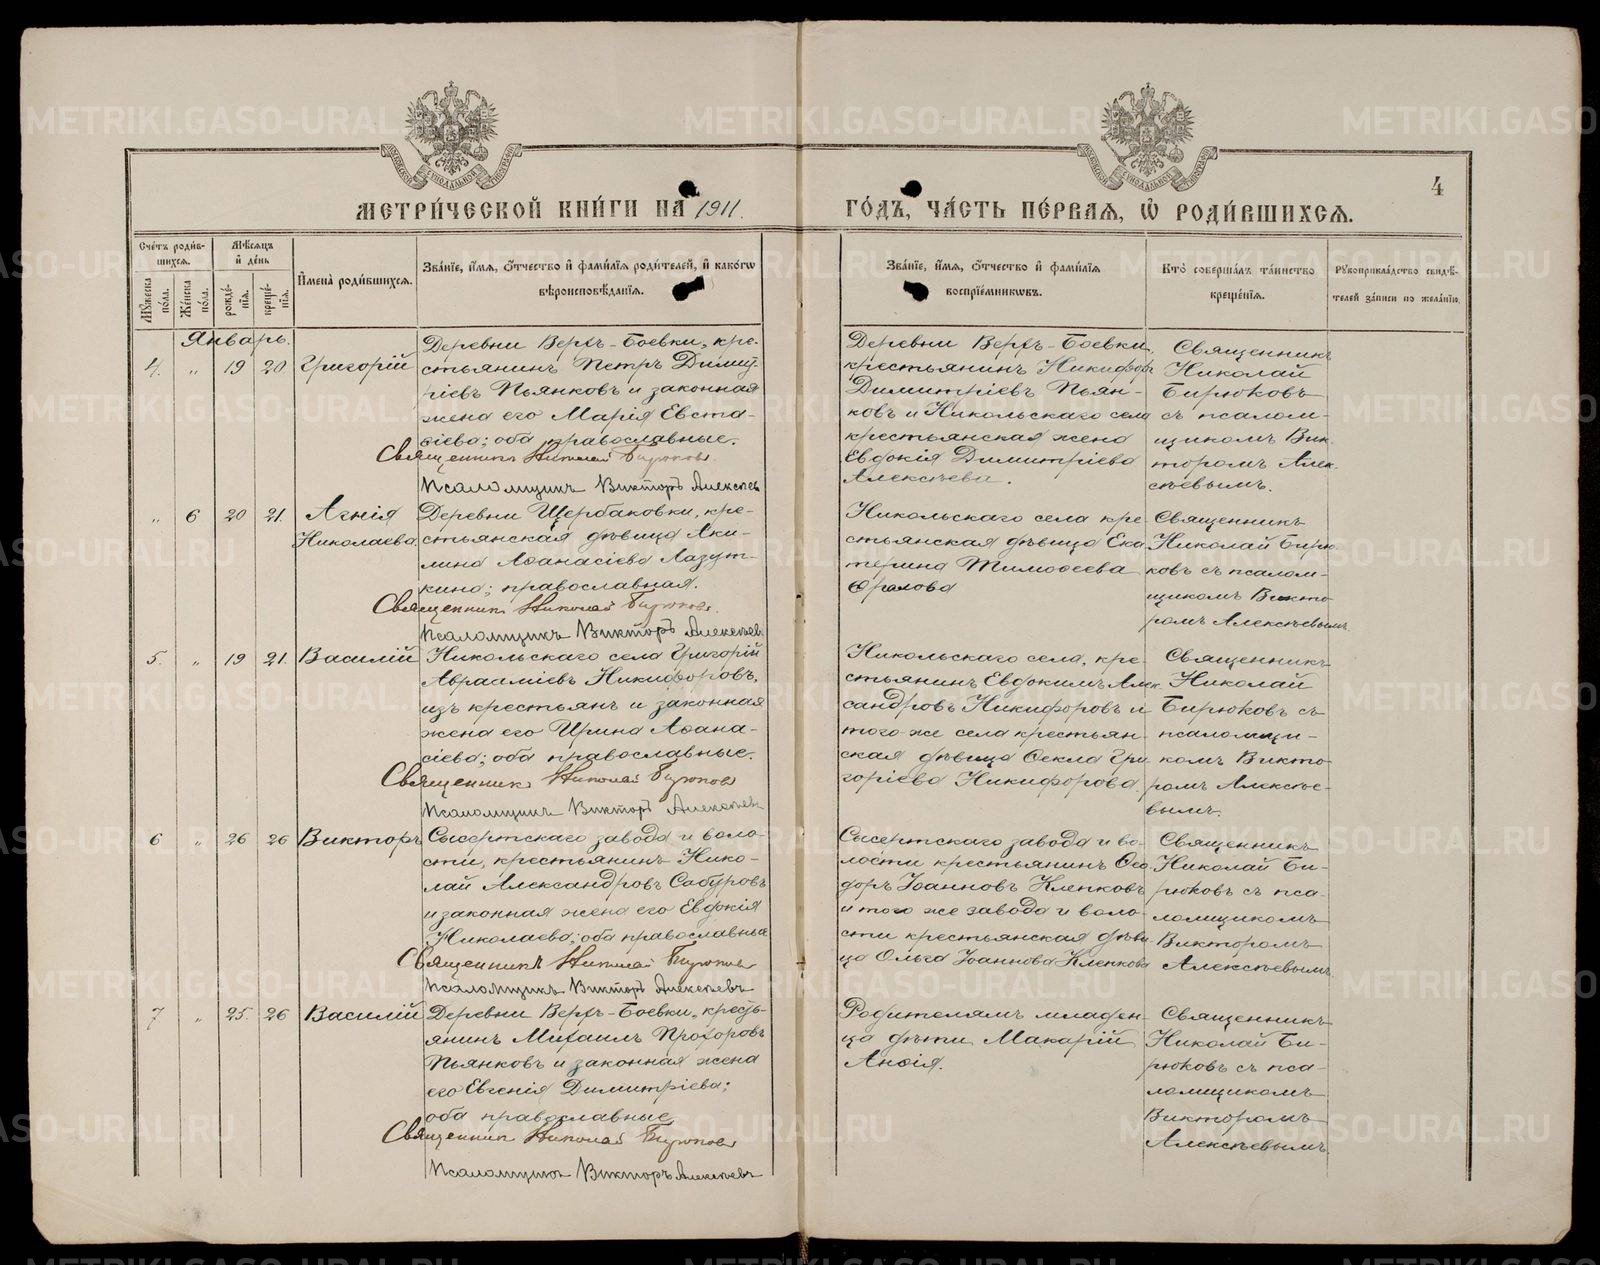 4
МЕТРИ́ЧЕСКОЙ КНИ́ГИ НА 1911. ГО́ДЪ, ЧА́СТЬ ПЕ́РВАЯ, Ѡ҆ РОДИ́ВШИХСЯ.
Сче́тъ роди́вшихся.
Мꙋ́жеска по́ла.
Же́нска по́ла.
Мѣ́сяцъ и҆ де́нь
рожде́нїя.
креще́нїя.
И҆мена̀ роди́вшихся.
Зва́нїе, и҆́мя, ѻ҆́тчество и҆ фами́лїя роди́телей, и҆ како́гѡ
вѣроисповѣ́данїя.
Зва́нїе, и҆́мя, ѻ҆́тчество и҆ фами́лїя
воспрїе́мникѡвъ.
Кто̀ соверша́лъ та́инство
креще́нїя.
Рꙋкоприкла́дство свидѣ́-
телей за́писи по жела́нїю.
Январь.
4. „ 19 20 Григорій
Деревни Верхъ-Боевки, кре-
стьянинъ Петръ Димит-
ріевъ Пьянковъ и законная
жена его Марія Евста-
ѳіева; оба православные.
Священникъ Николай Бирюковъ.
Псаломщикъ Викторъ Алексѣевъ
Деревни Верхъ-Боевки,
крестьянинъ Никифоръ
Димитріевъ Пьян-
ковъ и Никольскаго села
крестьянская жена
Евдокія Димитріева
Алексѣева.
Священникъ
Николай
Бирюковъ
съ псалом-
щикомъ Вик-
торомъ Алек-
сѣевымъ.
„ 6 20 21. Агнія
Николаева.
Деревни Щербаковки, кре-
стьянская дѣвица Аки-
лина Аѳанасіева Лазут-
кина; православная.
Священникъ Николай Бирюковъ.
Псаломщикъ Викторъ Алексѣевъ
Никольскаго села кре-
стьянская дѣвица Ека-
терина Тимоѳеева
Фролова
Священникъ
Николай Бирю-
ковъ съ псалом-
щикомъ Викто-
ромъ Алексѣевымъ.
5. „ 19 21. Василій
Никольскаго села Григорій
Авраамiевъ Никифоровъ,
изъ крестьянъ и законная
жена его Ирина Аѳана-
сіева; оба православные.
Священникъ Николай Бирюковъ
Псаломщикъ Викторъ Алексѣевъ
Никольскаго села, кре-
стьянинъ Евдокимъ Алек-
сандровъ Никифоровъ и
того-же села крестьян-
ская дѣвица Ѳекла Гри-
горіева Никифорова.
Священникъ
Николай
Бирюковъ съ
псаломщи-
комъ Викто-
ромъ Алексѣе-
вымъ.
6 „ 26 26 Викторъ
Сысертскаго завода и воло-
сти, крестьянинъ Нико-
лай Александровъ Сабуровъ
и законная жена его Евдокія
Николаева; оба православные
Священникъ Николай Бирюковъ
Псаломщикъ Викторъ Алексѣевъ
Сысертскаго завода и во-
лости крестьянинъ Ѳео-
доръ Іоанновъ Клепковъ
и того же завода и воло-
сти крестьянская дѣви-
ца Ольга Іоаннова Клепкова
Священникъ
Николай Би-
рюковъ съ пса-
ломщикомъ
Викторомъ
Алексѣевымъ.
7 „ 25. 26 Василій
Деревни Верхъ-Боевки, кресть-
янинъ Михаилъ Прохоровъ
Пьянковъ и законная жена
его Евгенія Димитріева;
оба православные
Священникъ Николай Бирюковъ
Псаломщикъ Викторъ Алексѣевъ
Родителямъ младен-
ца дѣти Макарій
Анѳія.
Священникъ
Николай Би-
рюковъ съ пса-
ломщикомъ
Викторомъ
Алексѣевымъ.
METRIKI.GASO-URAL.RU